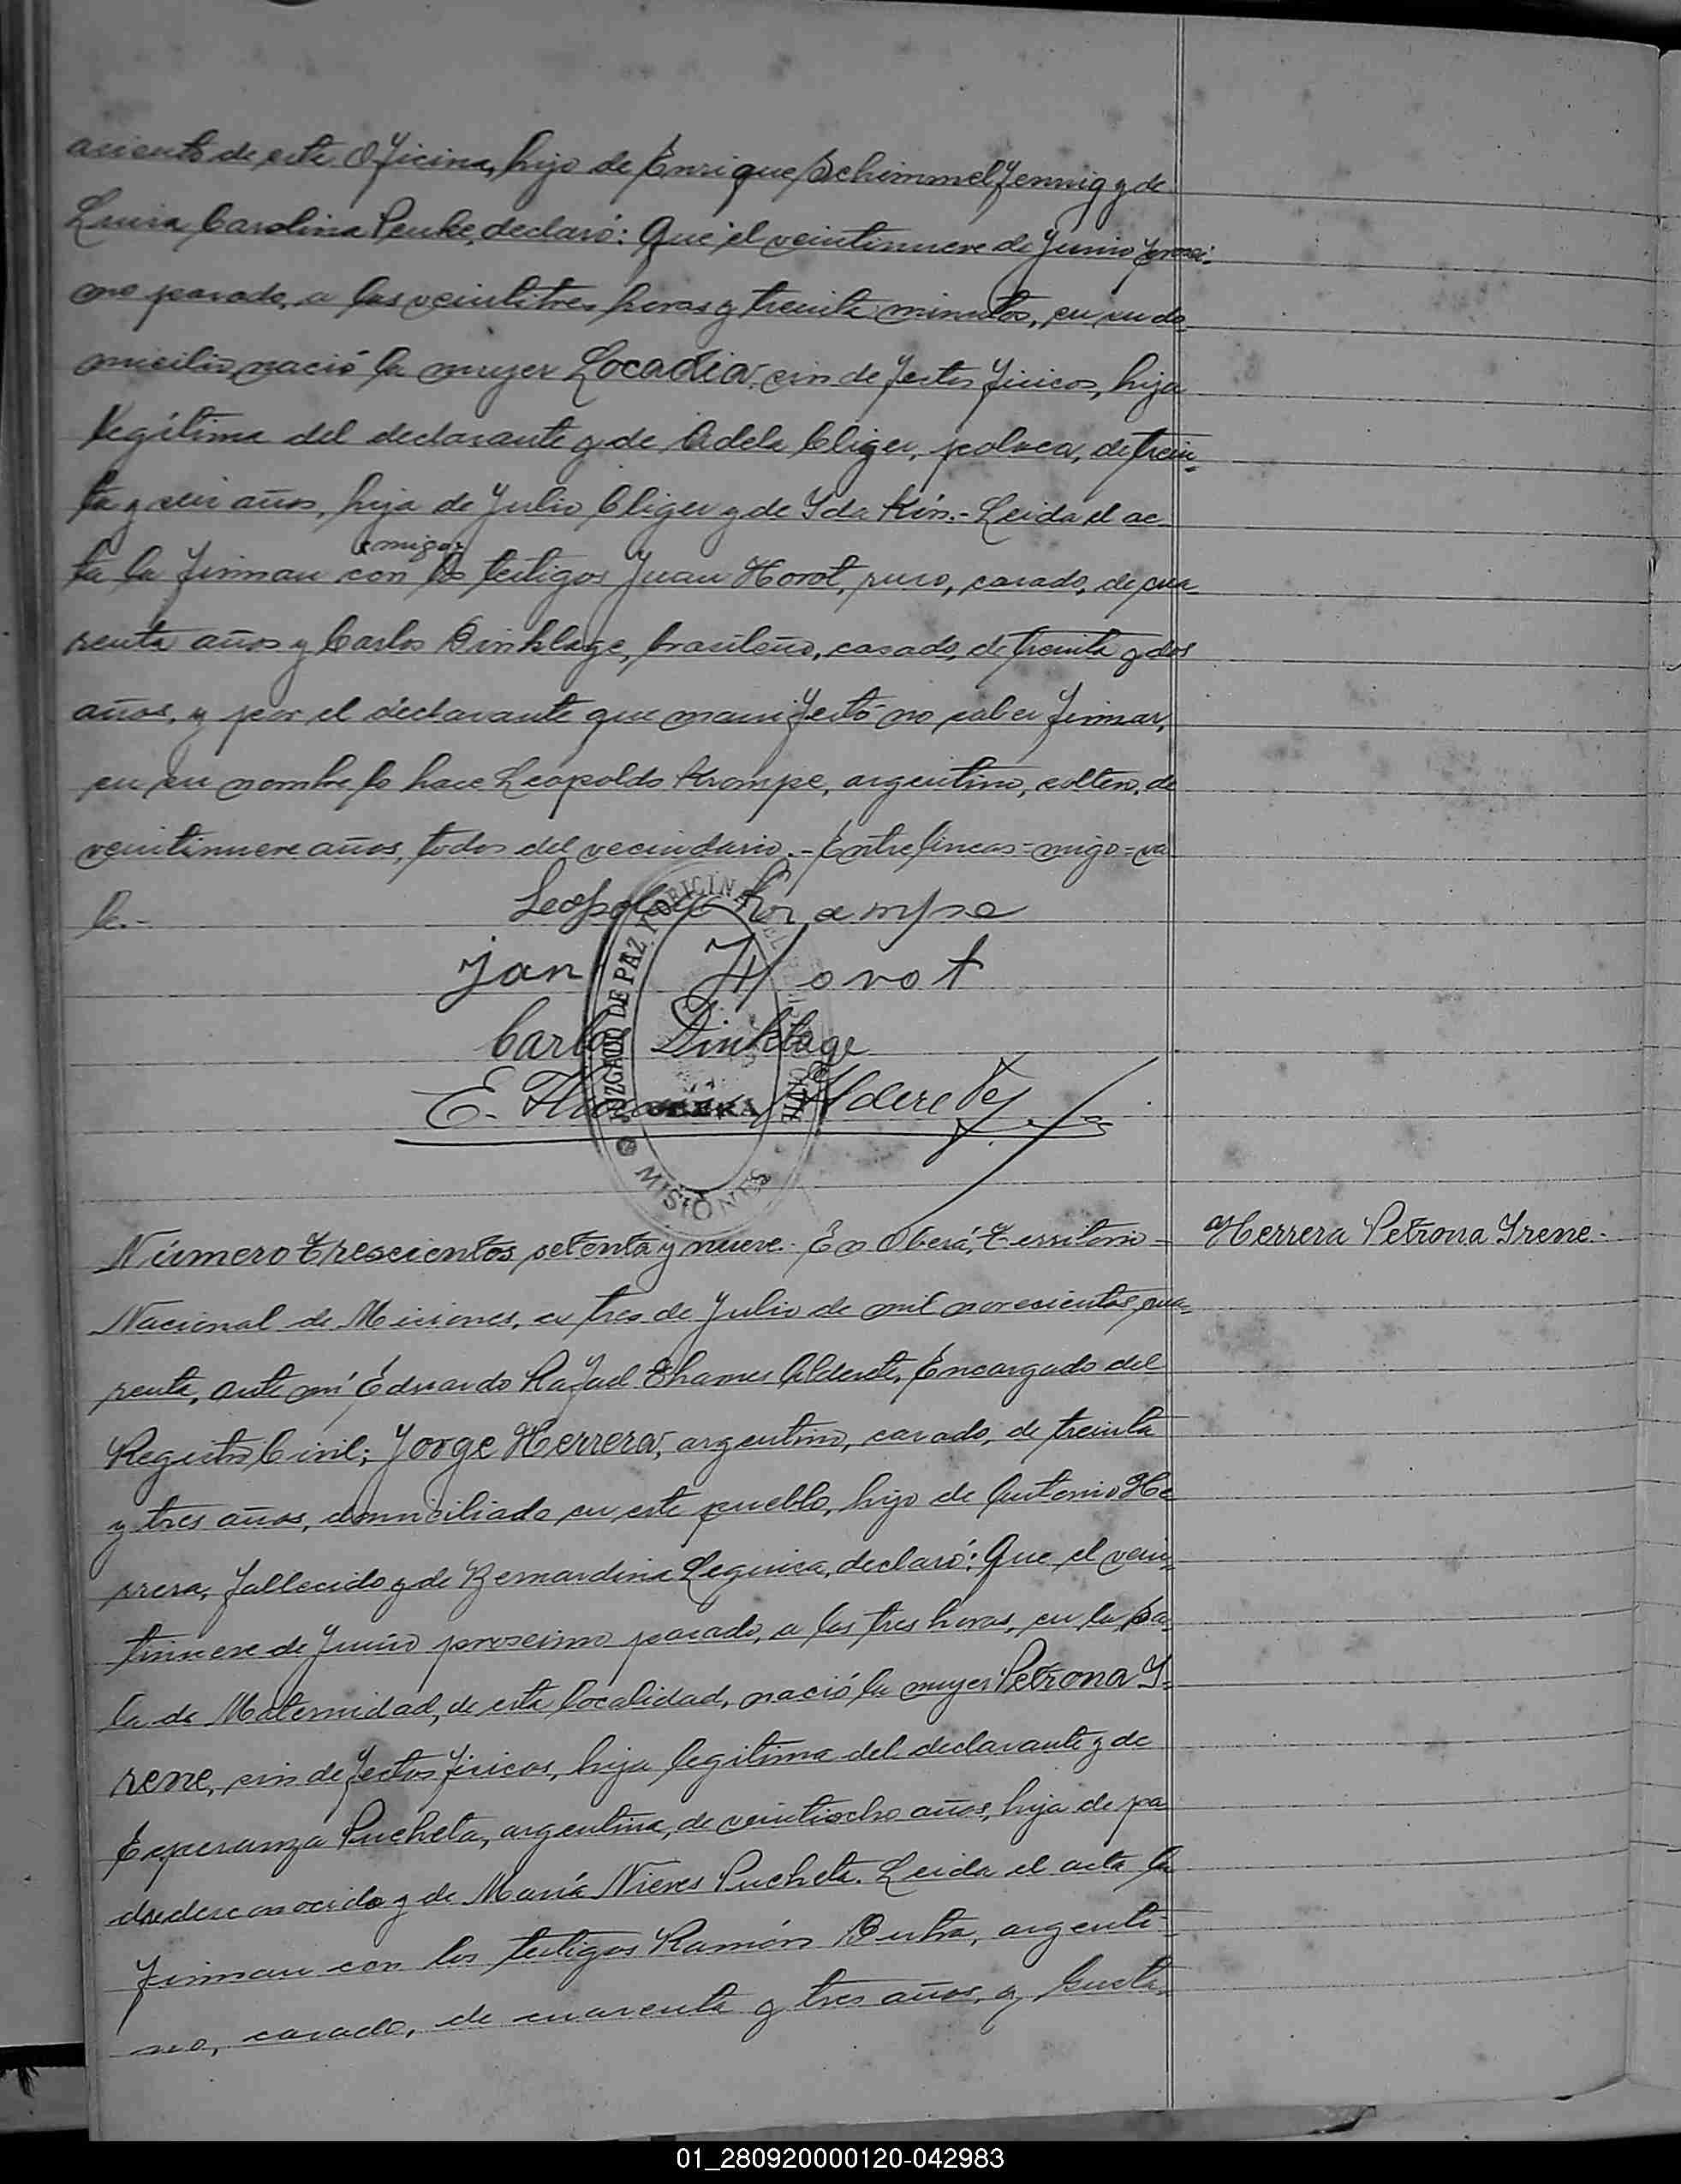 asiento de esta Oficina, hijo de Enrique Schimmelfennig y de
Luisa Carolina Penke, declaró: Que el veintinueve de Junio proxi-
mo pasado, a las veintitres horas y treinta minutos, en su do-
micilio nació la mujer Locadia, sin defectos fisicos, hija
legítima del declarante y de Adela Cliger, polaca, de trein-
ta y seis años, hija de Julio Cliger y de Ida Kin.- Leida el ac-
migo
ta la firman con los testigos Juan Horot, ruso, casado, de cua-
renta años y Carlos Dinklage, brasileño, casado, de treinta y dos
años, y por el declarante que manifestó no saber firmar,
en su nombre lo hace Leopoldo Krompe, argentino, soltero, de
veintinueve años, todos del vecindario.- Entrelineas=migo=va-
le.-
Leopoldo Krampe
Jan Horot
Carlos Dinklage
E. Alderete
JUZGADO DE PAZ Y OFICINA DEL
OBERA
MISIONES
Número Trescientos setenta y nueve.- En Oberá, Territorio
Herrera Petrona Irene.-
Nacional de Misiones, a tres de Julio de mil novecientos cua-
renta, ante mí Eduardo Rafael Thames Alderete, Encargado del
Registro Civil; Jorge Herrera, argentino, casado, de treinta
y tres años, domiciliado en este pueblo, hijo de Antonio He-
rrera, fallecido y de Bernardina Leguica, declaró: Que el vein-
tinueve de Junio proximo pasado, a las tres horas, en la Sa-
la de Maternidad, de esta localidad, nació la mujer Petrona I-
rene, sin defectos fisicos, hija legitima del declarante y de
Esperanza Pucheta, argentina, de veintiocho años, hija de pa-
dre desconocido y de María Nieves Pucheta. Leida el acta la
firman con los testigos Ramón Dutra, argenti-
no, casado, de cuarenta y tres años, y Gusta-
01_280920000120-042983